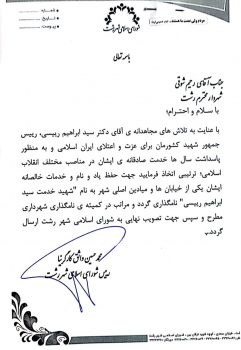 شورای اسلامی شهر رشت
شماره :
تاریخ :
پیوست :
باسمه تعالی
جناب آقای رحیم شوقی
شهردار محترم رشت
با سلام و احترام؛
با عنایت به تلاش های مجاهدانه ی آقای دکتر سید ابراهیم رییسی، رییس
جمهور شهید کشورمان برای عزت و اعتلای ایران اسلامی و به منظور
پاسداشت سال ها خدمت صادقانه ی ایشان در مناصب مختلف انقلاب
اسلامی؛ ترتیبی اتخاذ فرمایید جهت حفظ یاد و نام و خدمات خالصانه
ایشان یکی از خیابان ها و میادین اصلی شهر به نام "شهید خدمت سید
ابراهیم رییسی" نامگذاری گردد و مراتب در کمیته ی نامگذاری شهرداری
مطرح و سپس جهت تصویب نهایی به شورای اسلامی شهر رشت ارسال
گردد.
محمد حسین واثق کارگرنیا
رییس شورای اسلامی شهر رشت